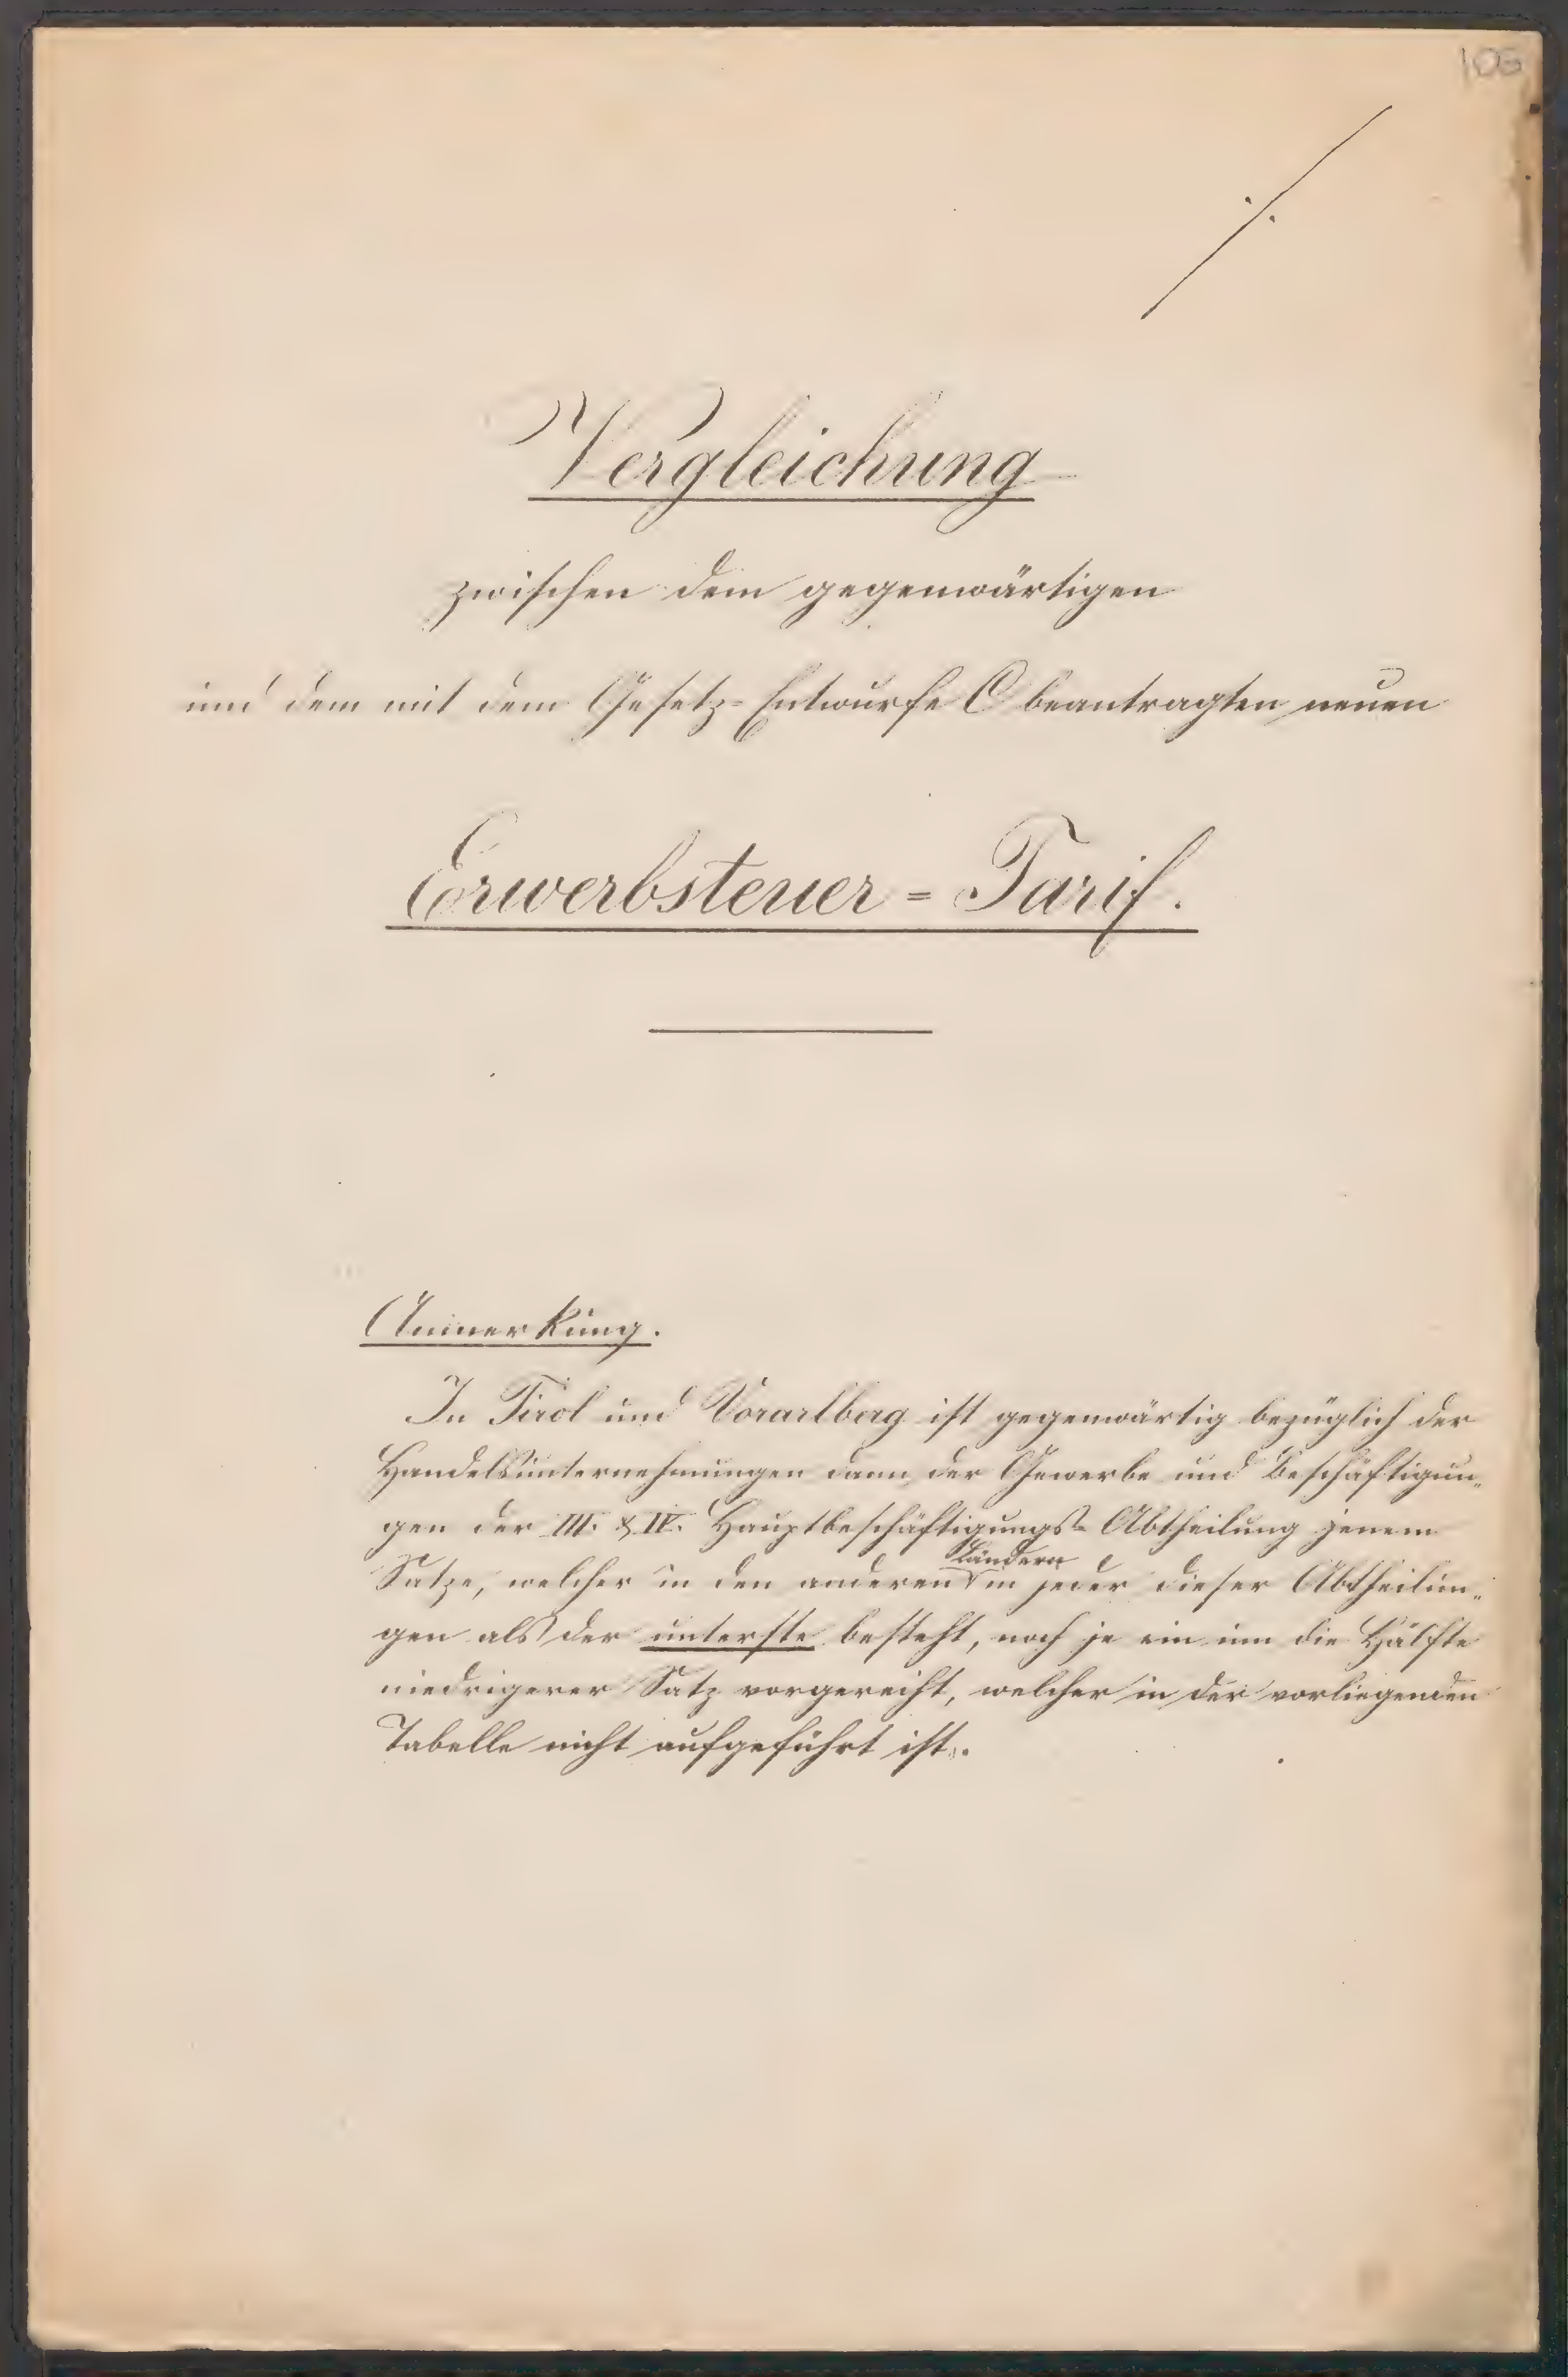 106
./.
Vergleichung
zwischen dem gegenwärtigen
und dem mit dem Gesetz-Entwurfe C beantragten neuen
Erwerbsteuer = Tarif.
Anmerkung.
In Tirol und Vorarlberg ist gegenwärtig bezüglich der
Handelsunternehmungen dann der Gewerbe und Beschäftigun„
gen der III. & IV. Hauptbeschäftigungs-Abtheilung jenem
Satze, welcher in den anderen Ländern in jeder dieser Abtheilun„
gen als der unterste besteht, noch je ein um die Hälfte
niedrigerer Satz vorgereiht, welcher in der vorliegenden
Tabelle nicht aufgeführt ist.